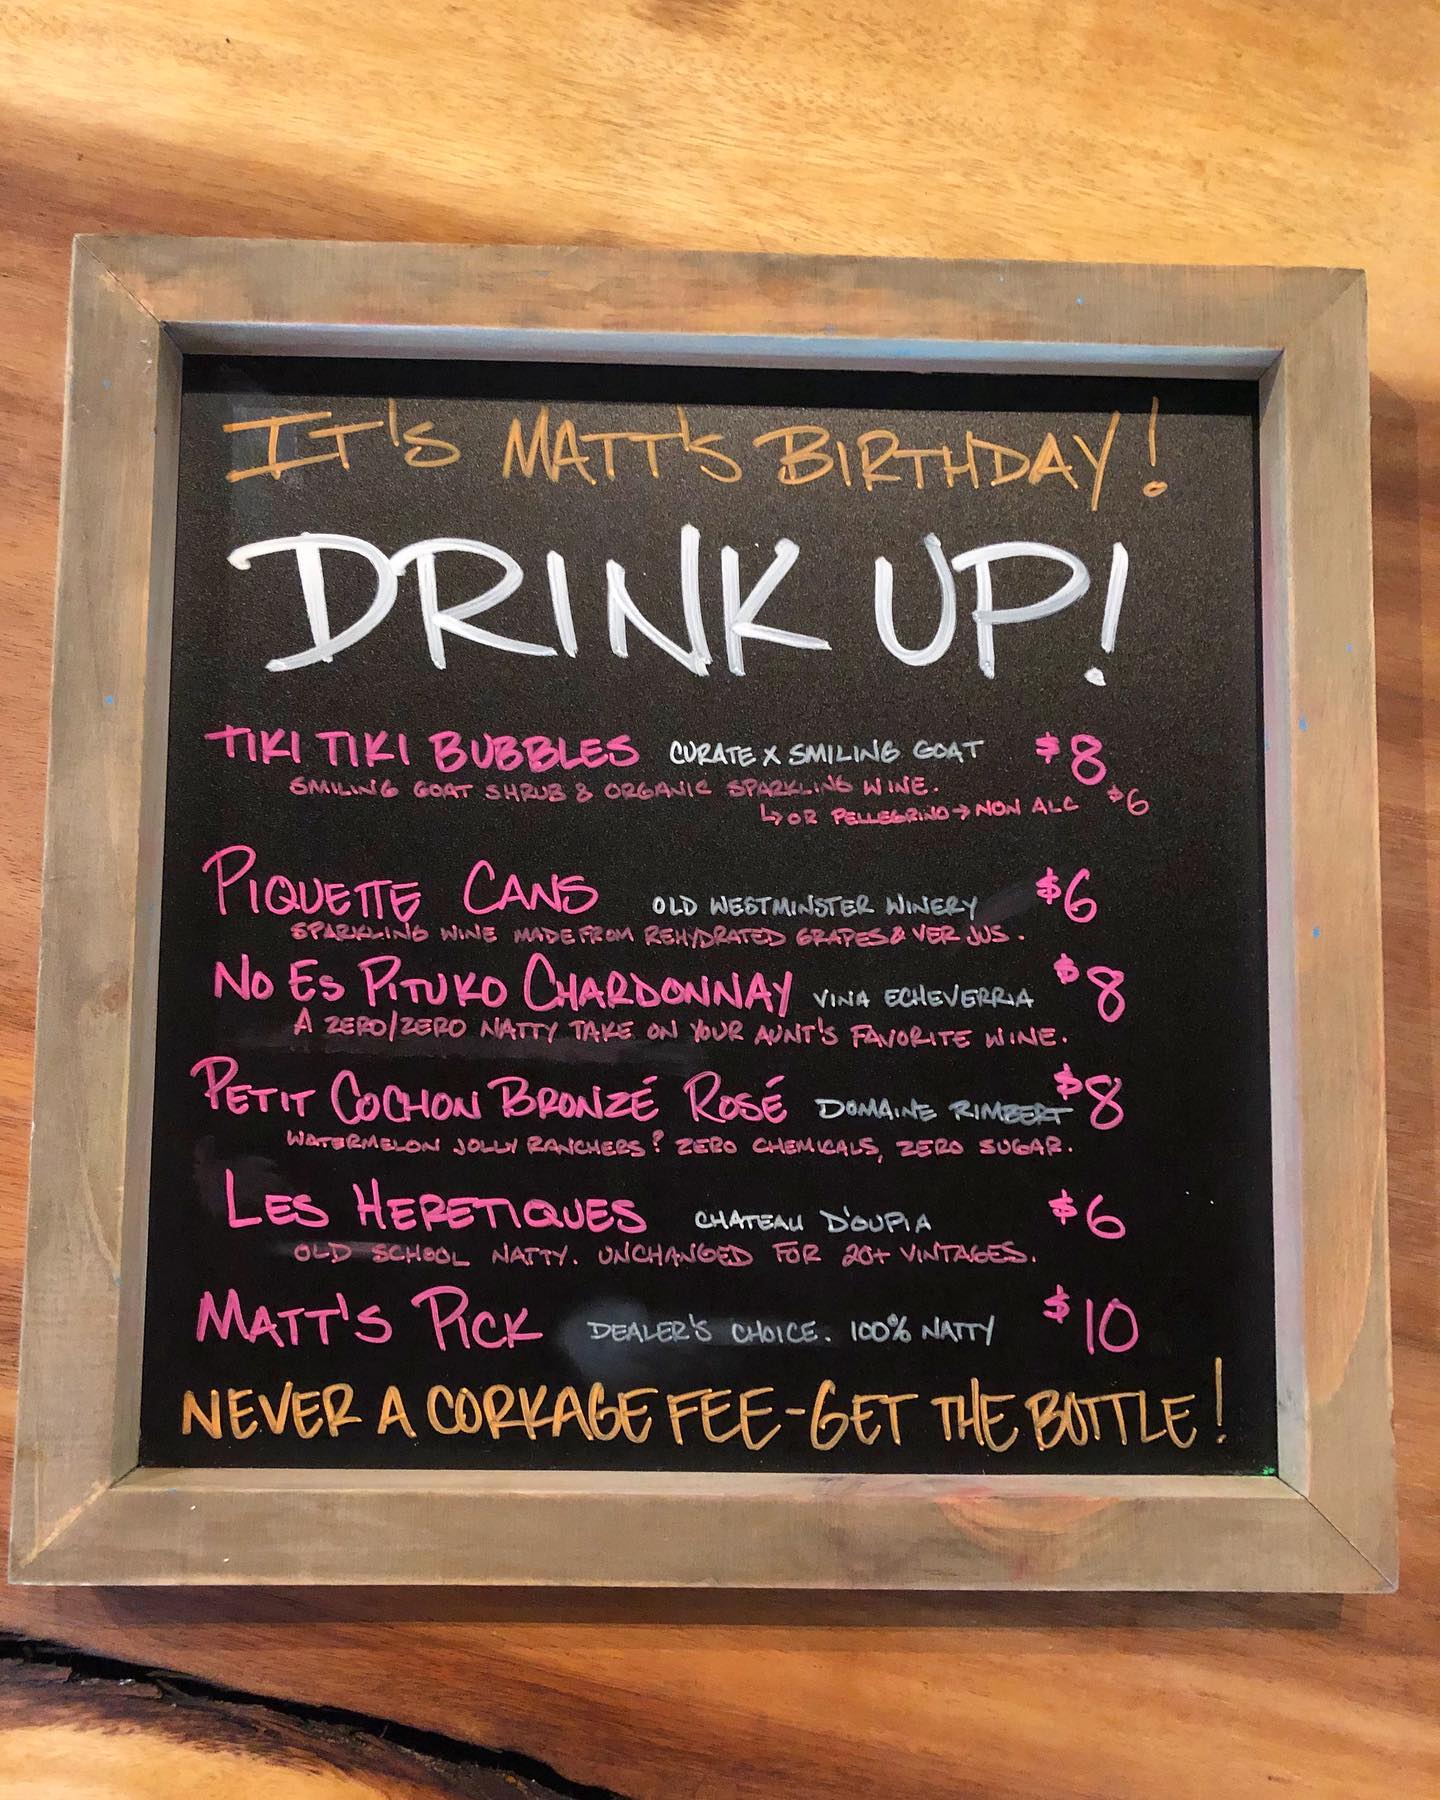 IT'S MATT'S BIRTHDAY!
DRINK UP!
TIKI TIKI BUBBLES CURATE X SMILING GOAT $8
SMILING GOAT SHRUB & ORGANIC SPARKLING WINE.
↳ OR PELLEGRINO → NON ALC $6
PIQUETTE CANS OLD WESTMINSTER WINERY $6
SPARKLING WINE MADE FROM REHYDRATED GRAPES & VER JUS.
NO ES PITUKO CHARDONNAY VINA ECHEVERRIA $8
A ZERO/ZERO NATTY TAKE ON YOUR AUNT'S FAVORITE WINE.
PETIT COCHON BRONZÉ ROSÉ DOMAINE RIMBERT $8
WATERMELON JOLLY RANCHERS? ZERO CHEMICALS, ZERO SUGAR.
LES HERETIQUES CHATEAU D'OUPIA $6
OLD SCHOOL NATTY. UNCHANGED FOR 20+ VINTAGES.
MATT'S PICK DEALER'S CHOICE. 100% NATTY $10
NEVER A CORKAGE FEE-GET THE BOTTLE!